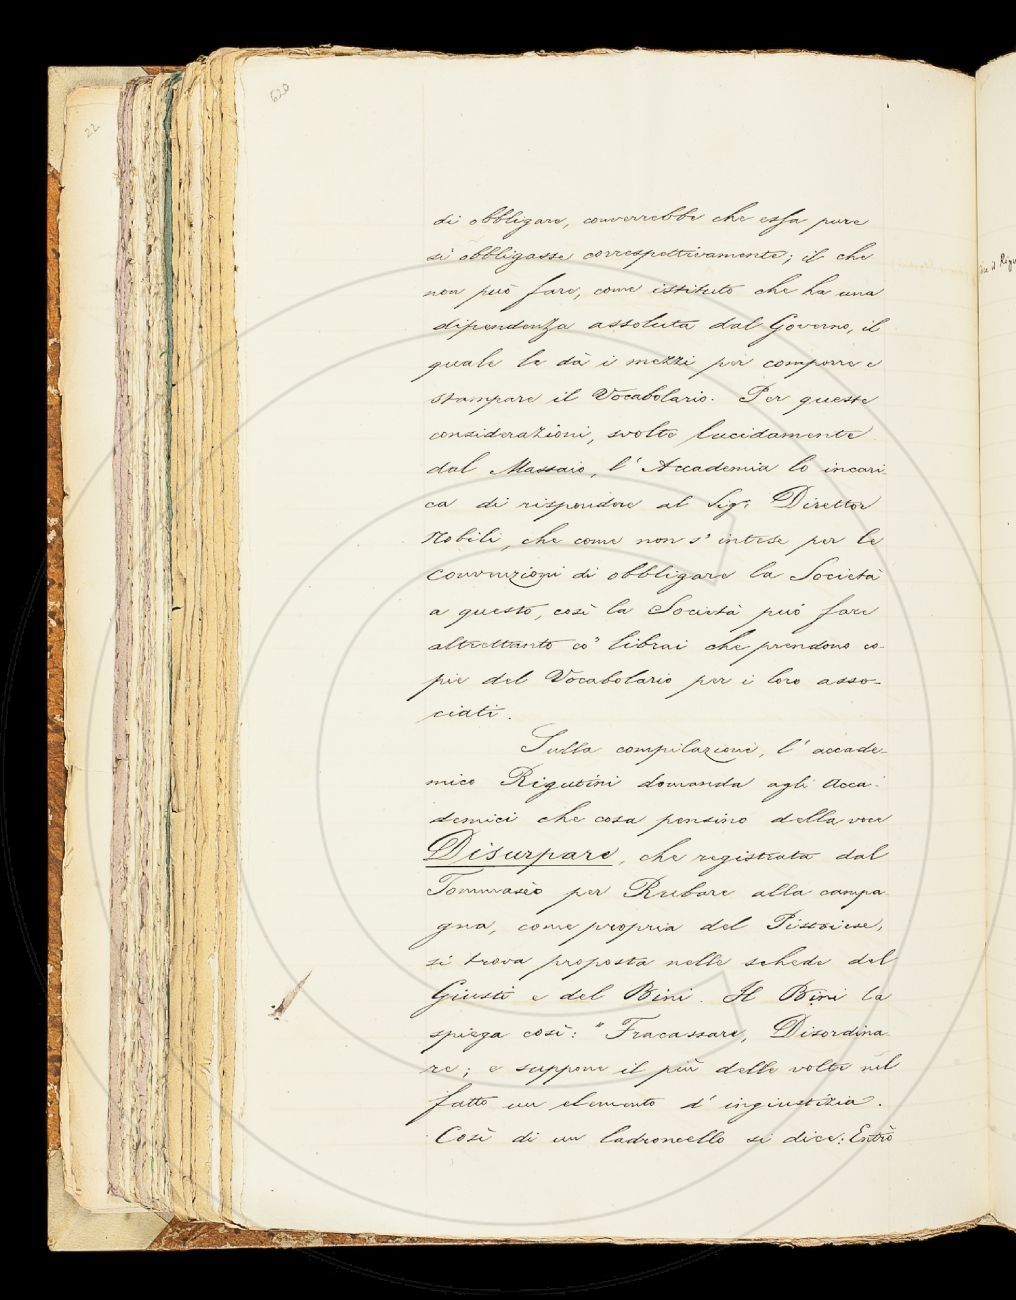 620
22
di obbligare, converrebbe che essa pure
si obbligasse correspettivamente; il che
non può fare, come istituto che ha una
dipendenza assoluta dal Governo, il
quale le dà i mezzi per comporre e
stampare il Vocabolario. Per queste
considerazioni, svolte lucidamente
dal Massaio, l'Accademia lo incari-
ca di rispondere al Sigr Direttor
Nobili, che come non s'intese per le
convenzioni di obbligare la Società
a questo, così la Società può fare
altrettanto co' librai che prendono co-
pie del Vocabolario per i loro asso-
ciati.
Sulla compilazione, l'accade-
mico Rigutini domanda agli Acca-
demici che cosa pensino della voce
Disurpare, che registrata dal
Tommasèo per Rubare alla campa-
gna, come propria del Pistoiese,
si trova proposta nelle schede del
Giusti e del Bini. Il Bini la
spiega così: "Fracassare, Disordina-
re; e suppone il più delle volte nel
fatto un elemento d'ingiustizia.
Così di un ladroncello si dice: Entrò